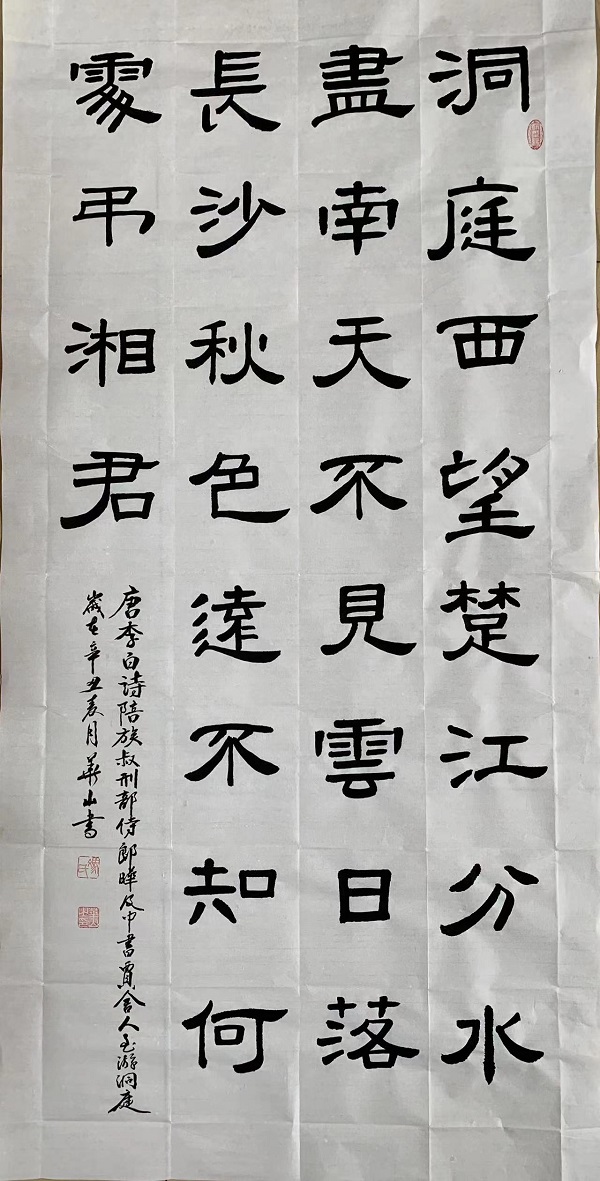 洞庭西望楚江分水
盡南天不見雲日落
長沙秋色遠不知何
處弔湘君
唐李白诗陪族叔刑部侍郎曄及中書賈舍人至游洞庭
歲在辛丑表月華山書